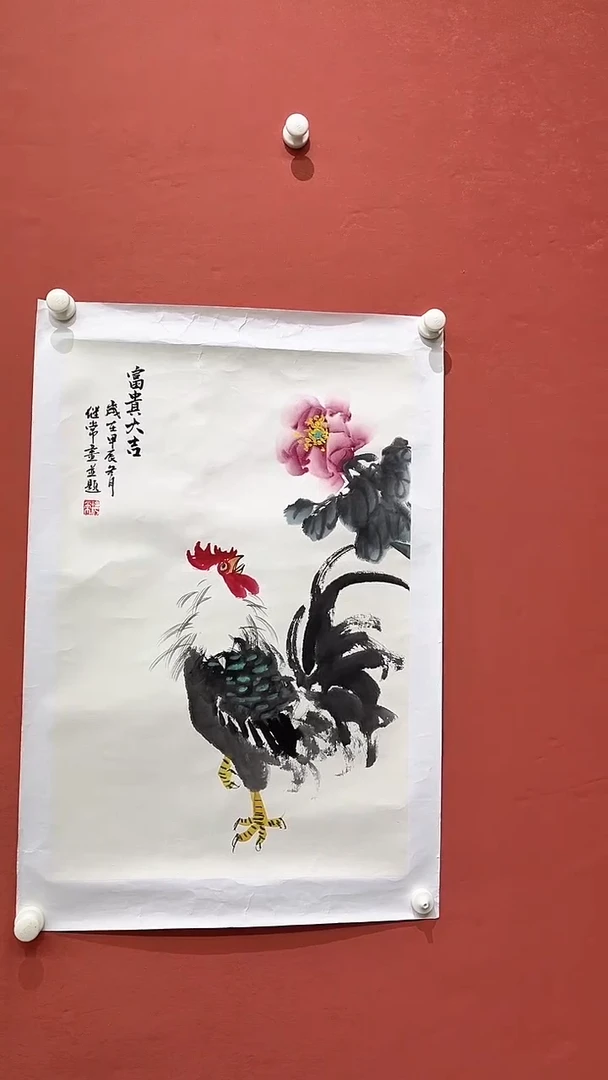 富貴大吉
歲在甲辰冬月
继常畫並題